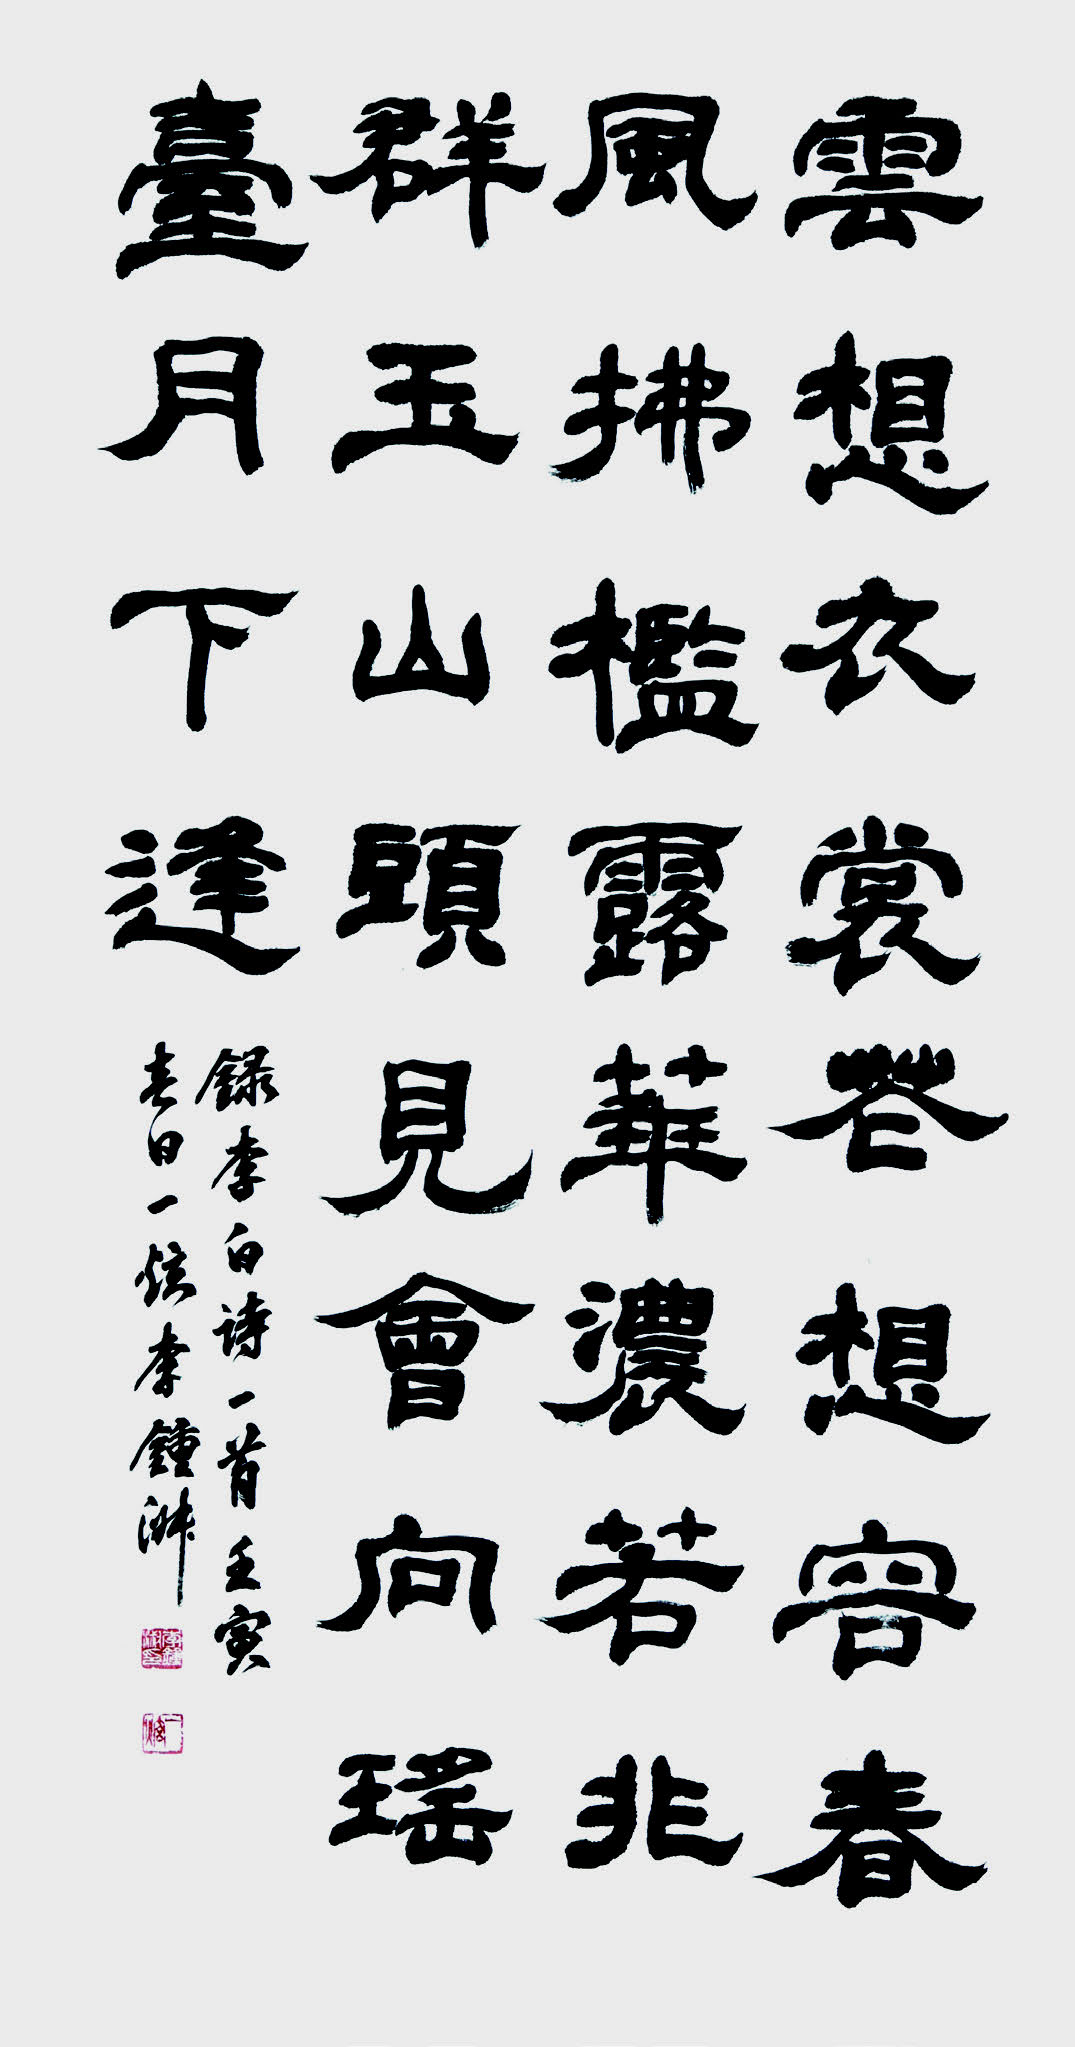 雲想衣裳花想容春
風拂檻露華濃若非
群玉山頭見會向瑤
臺月下逢
録李白诗一首壬寅
春日一李鍾